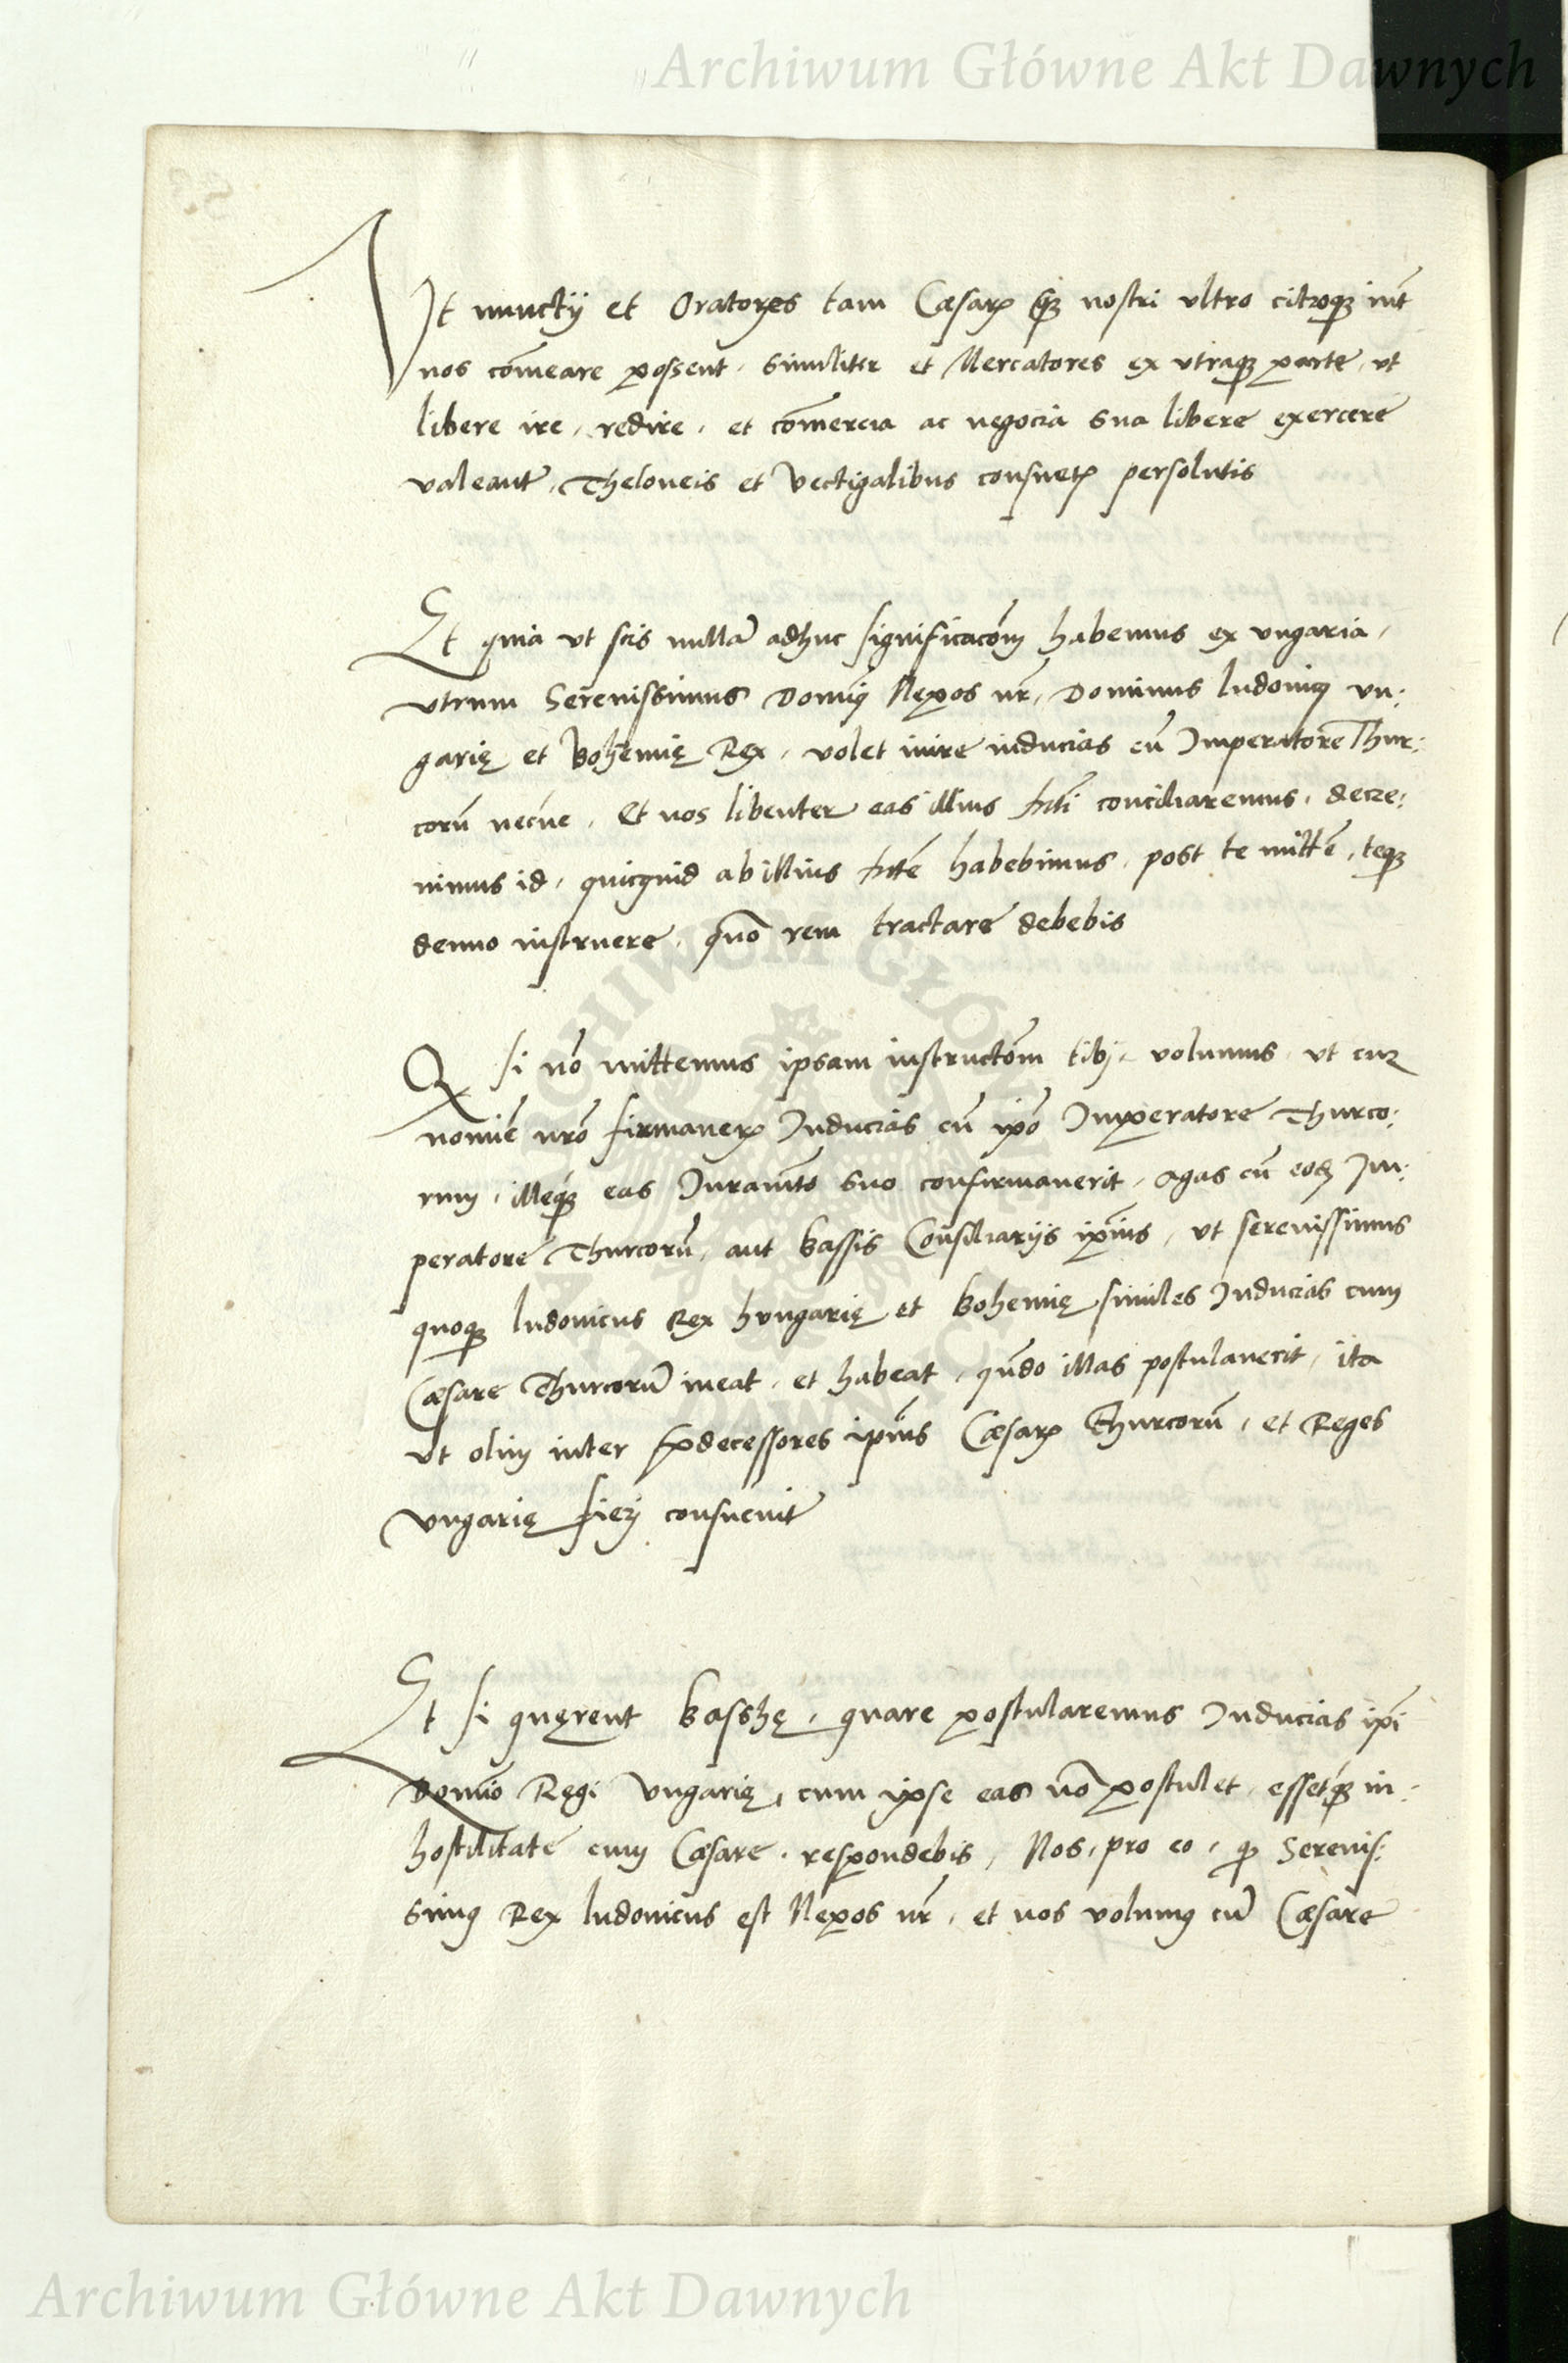 Archiwum Główne Akt Dawnych
Vt nunctij et Oratores tam Cæsaꝝ ꝙ nostri vltro citroqꝫ int̃
nos cõmeare possent, similiter et Mercatores ex vtraqꝫ parte, vt
libere ire, redire, et cõmercia ac negocia sua libere exercere
valeant, Theloneis et Vectigalibus consuetꝭ persolutis
Et quia vt scis nullã adhuc significacõm habemus ex vngaria,
vtrum Serenissimus Domĩꝯ Nepos nr̃, Dominus ludouicꝯ vn:
garię et Bohemię Rex, volet inire inducias cũ Imperatore Thur:
corũ necne, Et nos libenter eas illius conciliaremus, decre:
uimus id, quicquid ab illius habebimus, post te mittẽ, teqꝫ
denuo instruere, quõ rem tractare debebis
si nõ mittemus ipsam instructõm tibi, volumus, vt cum
nomĩe nrõ firmaueꝝ Inducias cũ ipõ Imperatore Thurco:
rum, illeqꝫ eas Iuramẽto suo confirmauerit, agas cũ eodẽ Im:
peratore Thurcorũ, aut Bassis Consiliarijs ipsĩus, vt serenissimus
quoqꝫ ludouicus Rex hungarię et Bohemię similes Inducias cum
Cæsare Thurcorũ ineat, et habeat, quñdo illas postulauerit, ita
vt olim inter p̃decessores ipsĩus Cæsaꝝ Thurcorũ, et Reges
vngarię fierj consueuit
Et si quęrent Basshę, quare postularemus Inducias ipsĩ
Domĩo Regi Vngarię, cum ipse eas nõ postulet, essetqꝫ in:
hostilitate cum Cæsare, respondebis, Nos, pro eo, ꝙ Serenis:
simꝯ Rex ludouicus est Nepos nr̃, et nos volumꝯ cũ Cæsare
ARCHIWUM GŁÓWNE AKT DAWNYCH
Archiwum Główne Akt Dawnych